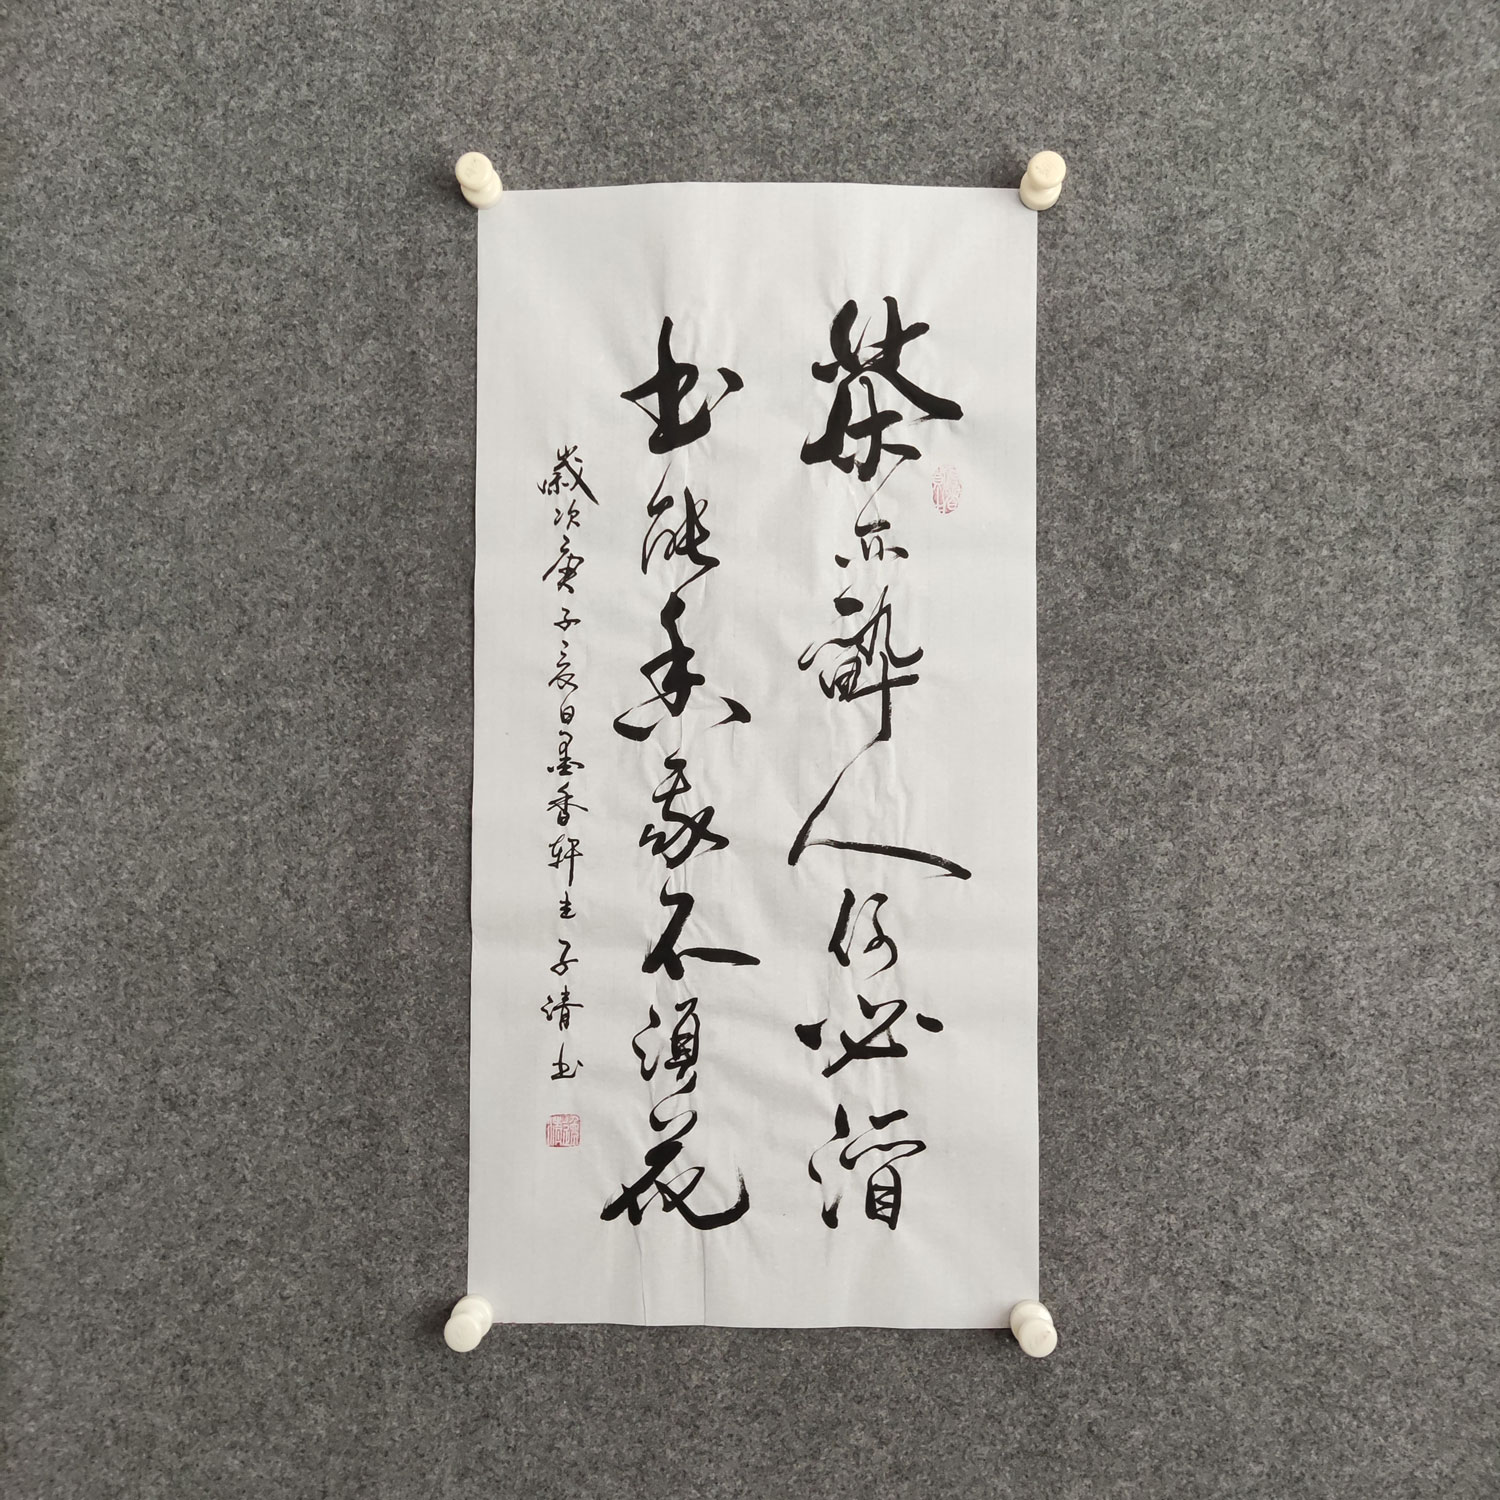 茶亦醉人何必酒
书能香我不须花
岁次庚子夏日墨香轩主子清书